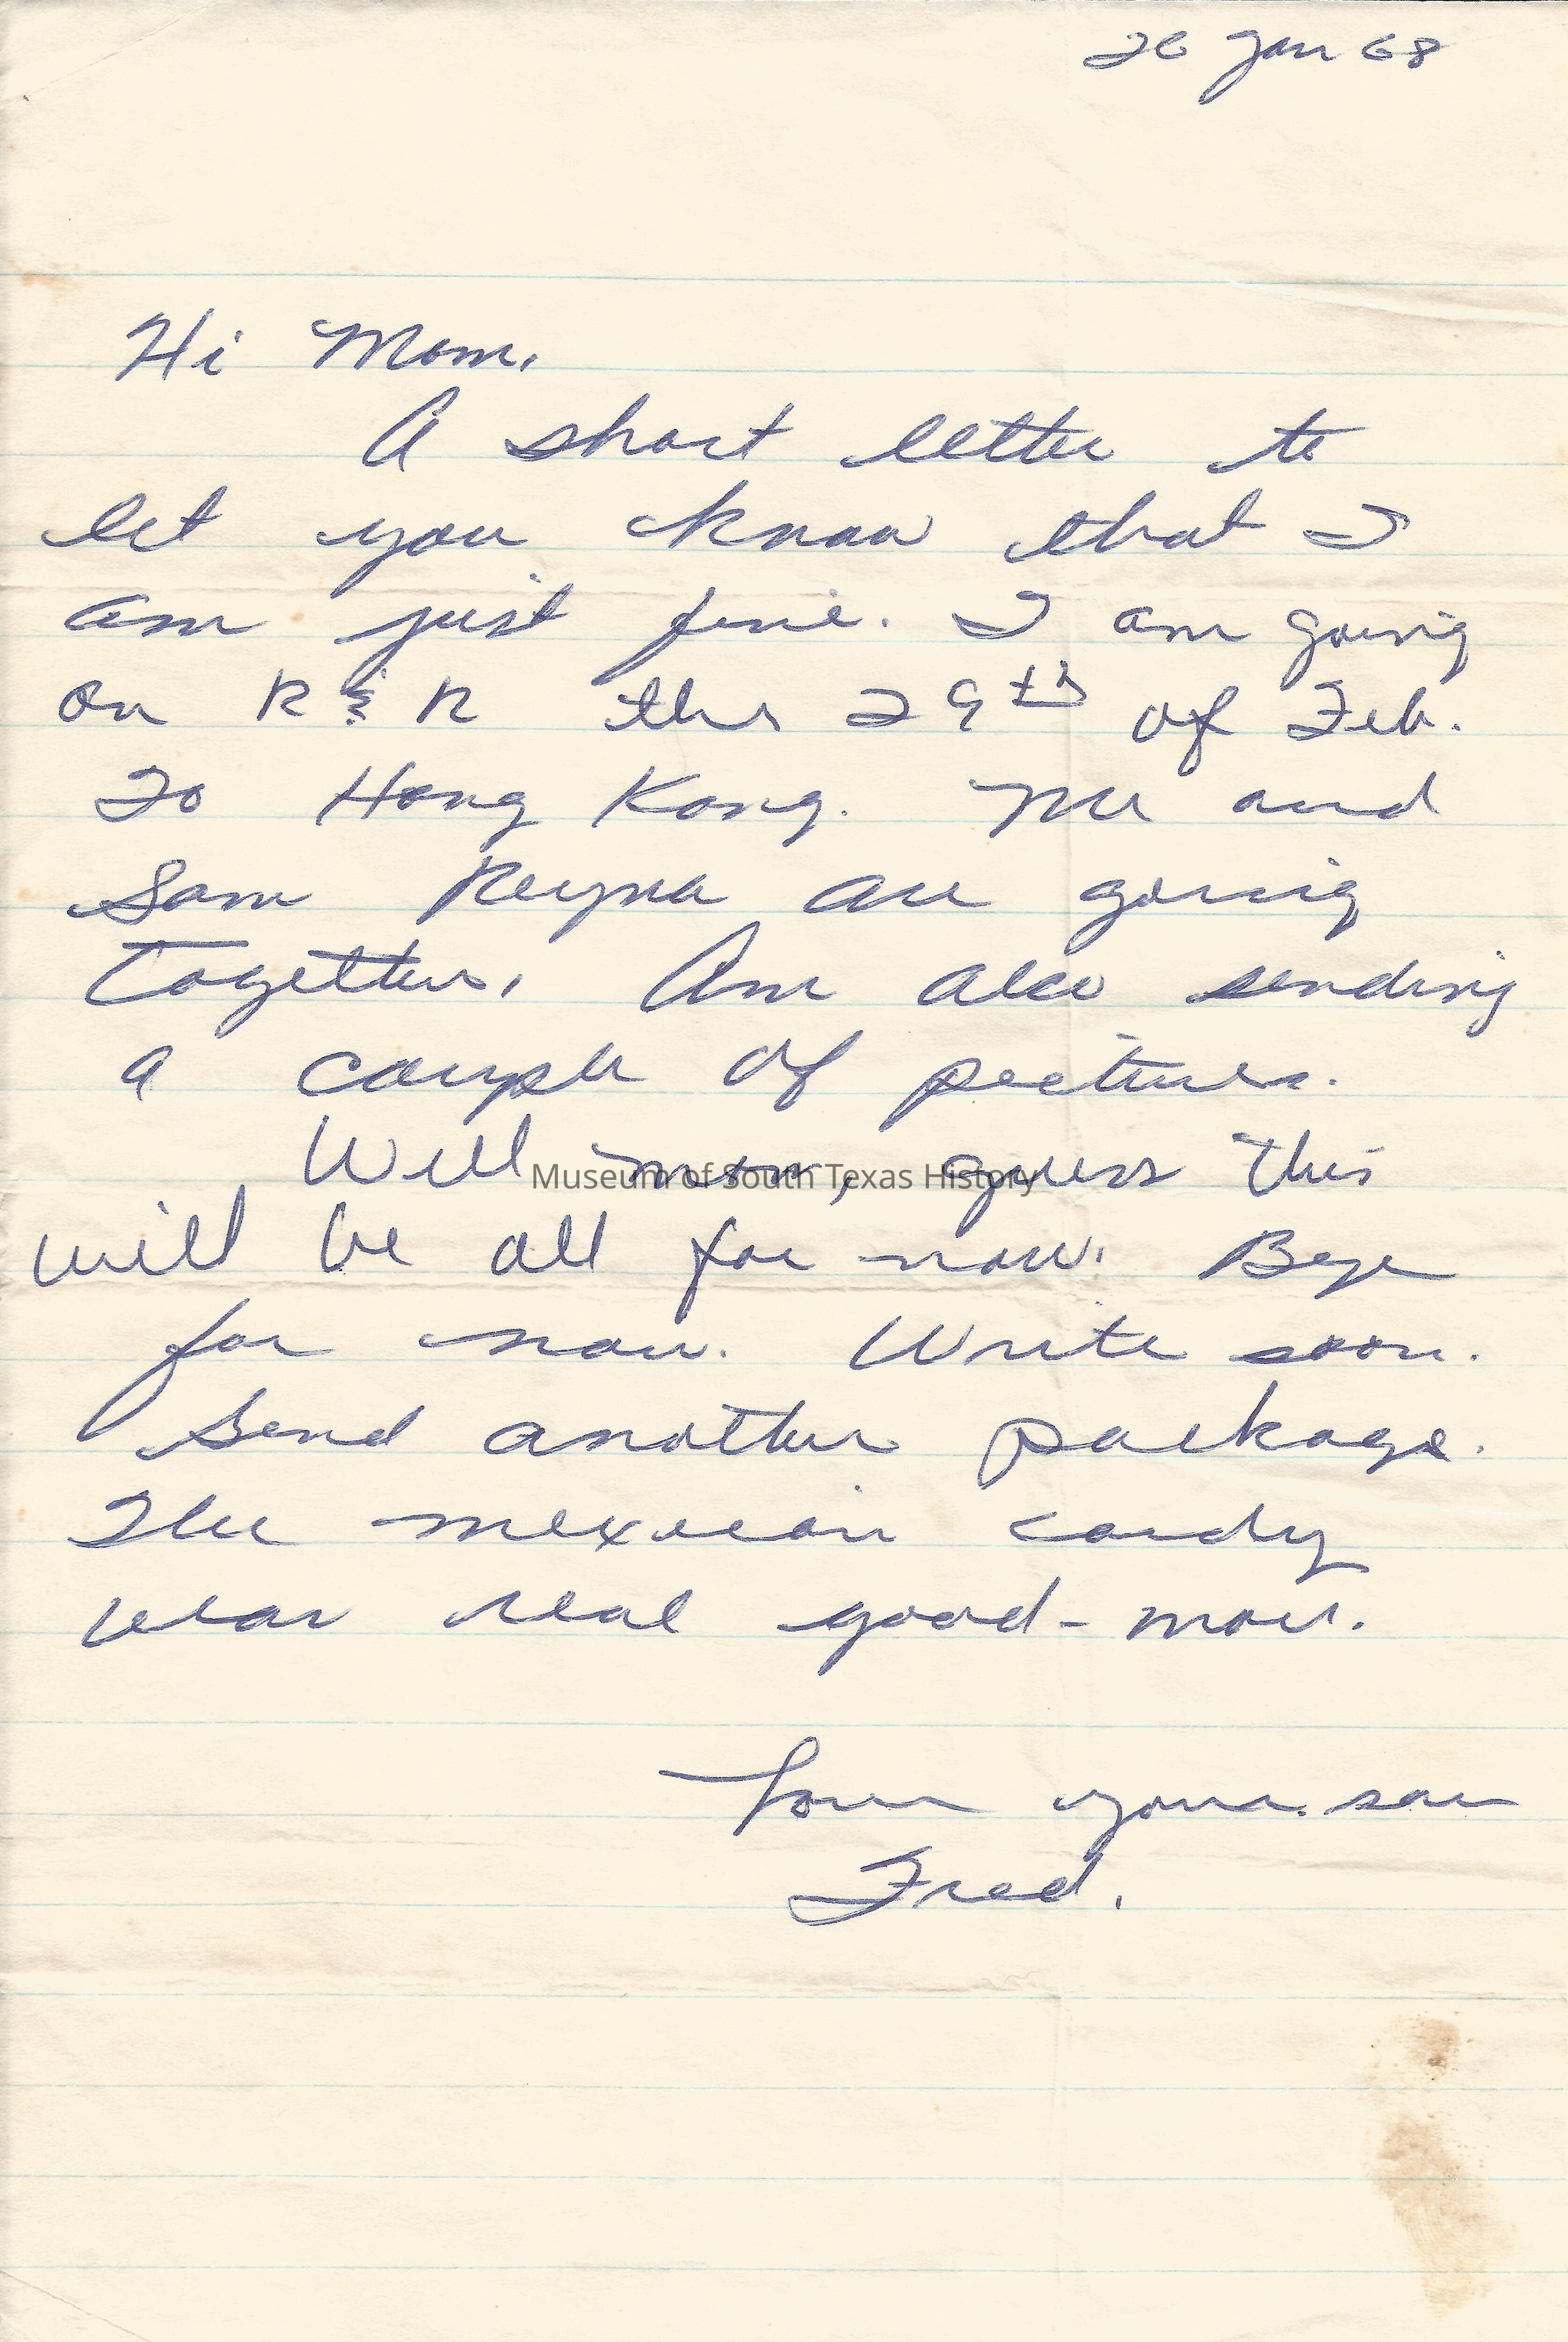 26 Jan 68
Hi Mom,
A short letter to
let you know that I
am just fine. I am going
on R & R the 29th of Feb.
To Hong Kong. Me and
Sam Reyna are going
together. Am also sending
a couple of pictures.
Well mom, guess this
Museum of South Texas History
will be all for now. Bye
for now. Write soon.
Send another package.
The mexican candy
was real good - mom.
Your son
Fred.